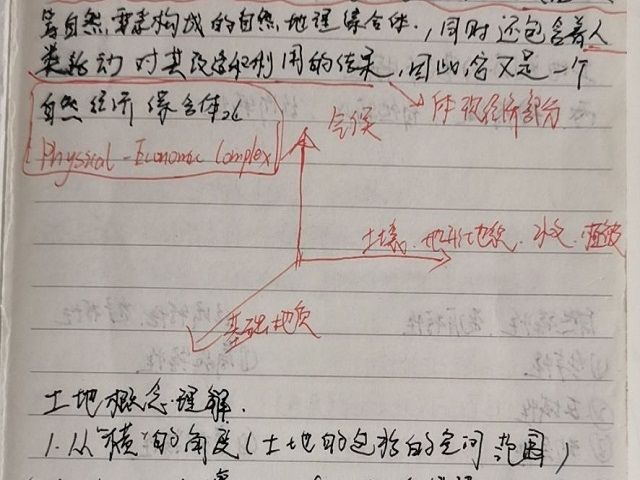 等自然要素构成的自然地理综合体,同时还包含着人
类活动对其改造和利用的结果,因此它又是一个
自然经济综合体
→体现经济部分
Physical-Economic Complex
气候
土壤、地形地貌、水文、植被
基础地质
土地概念理解.
1.从"横"的角度(土地的包括的空间范围)